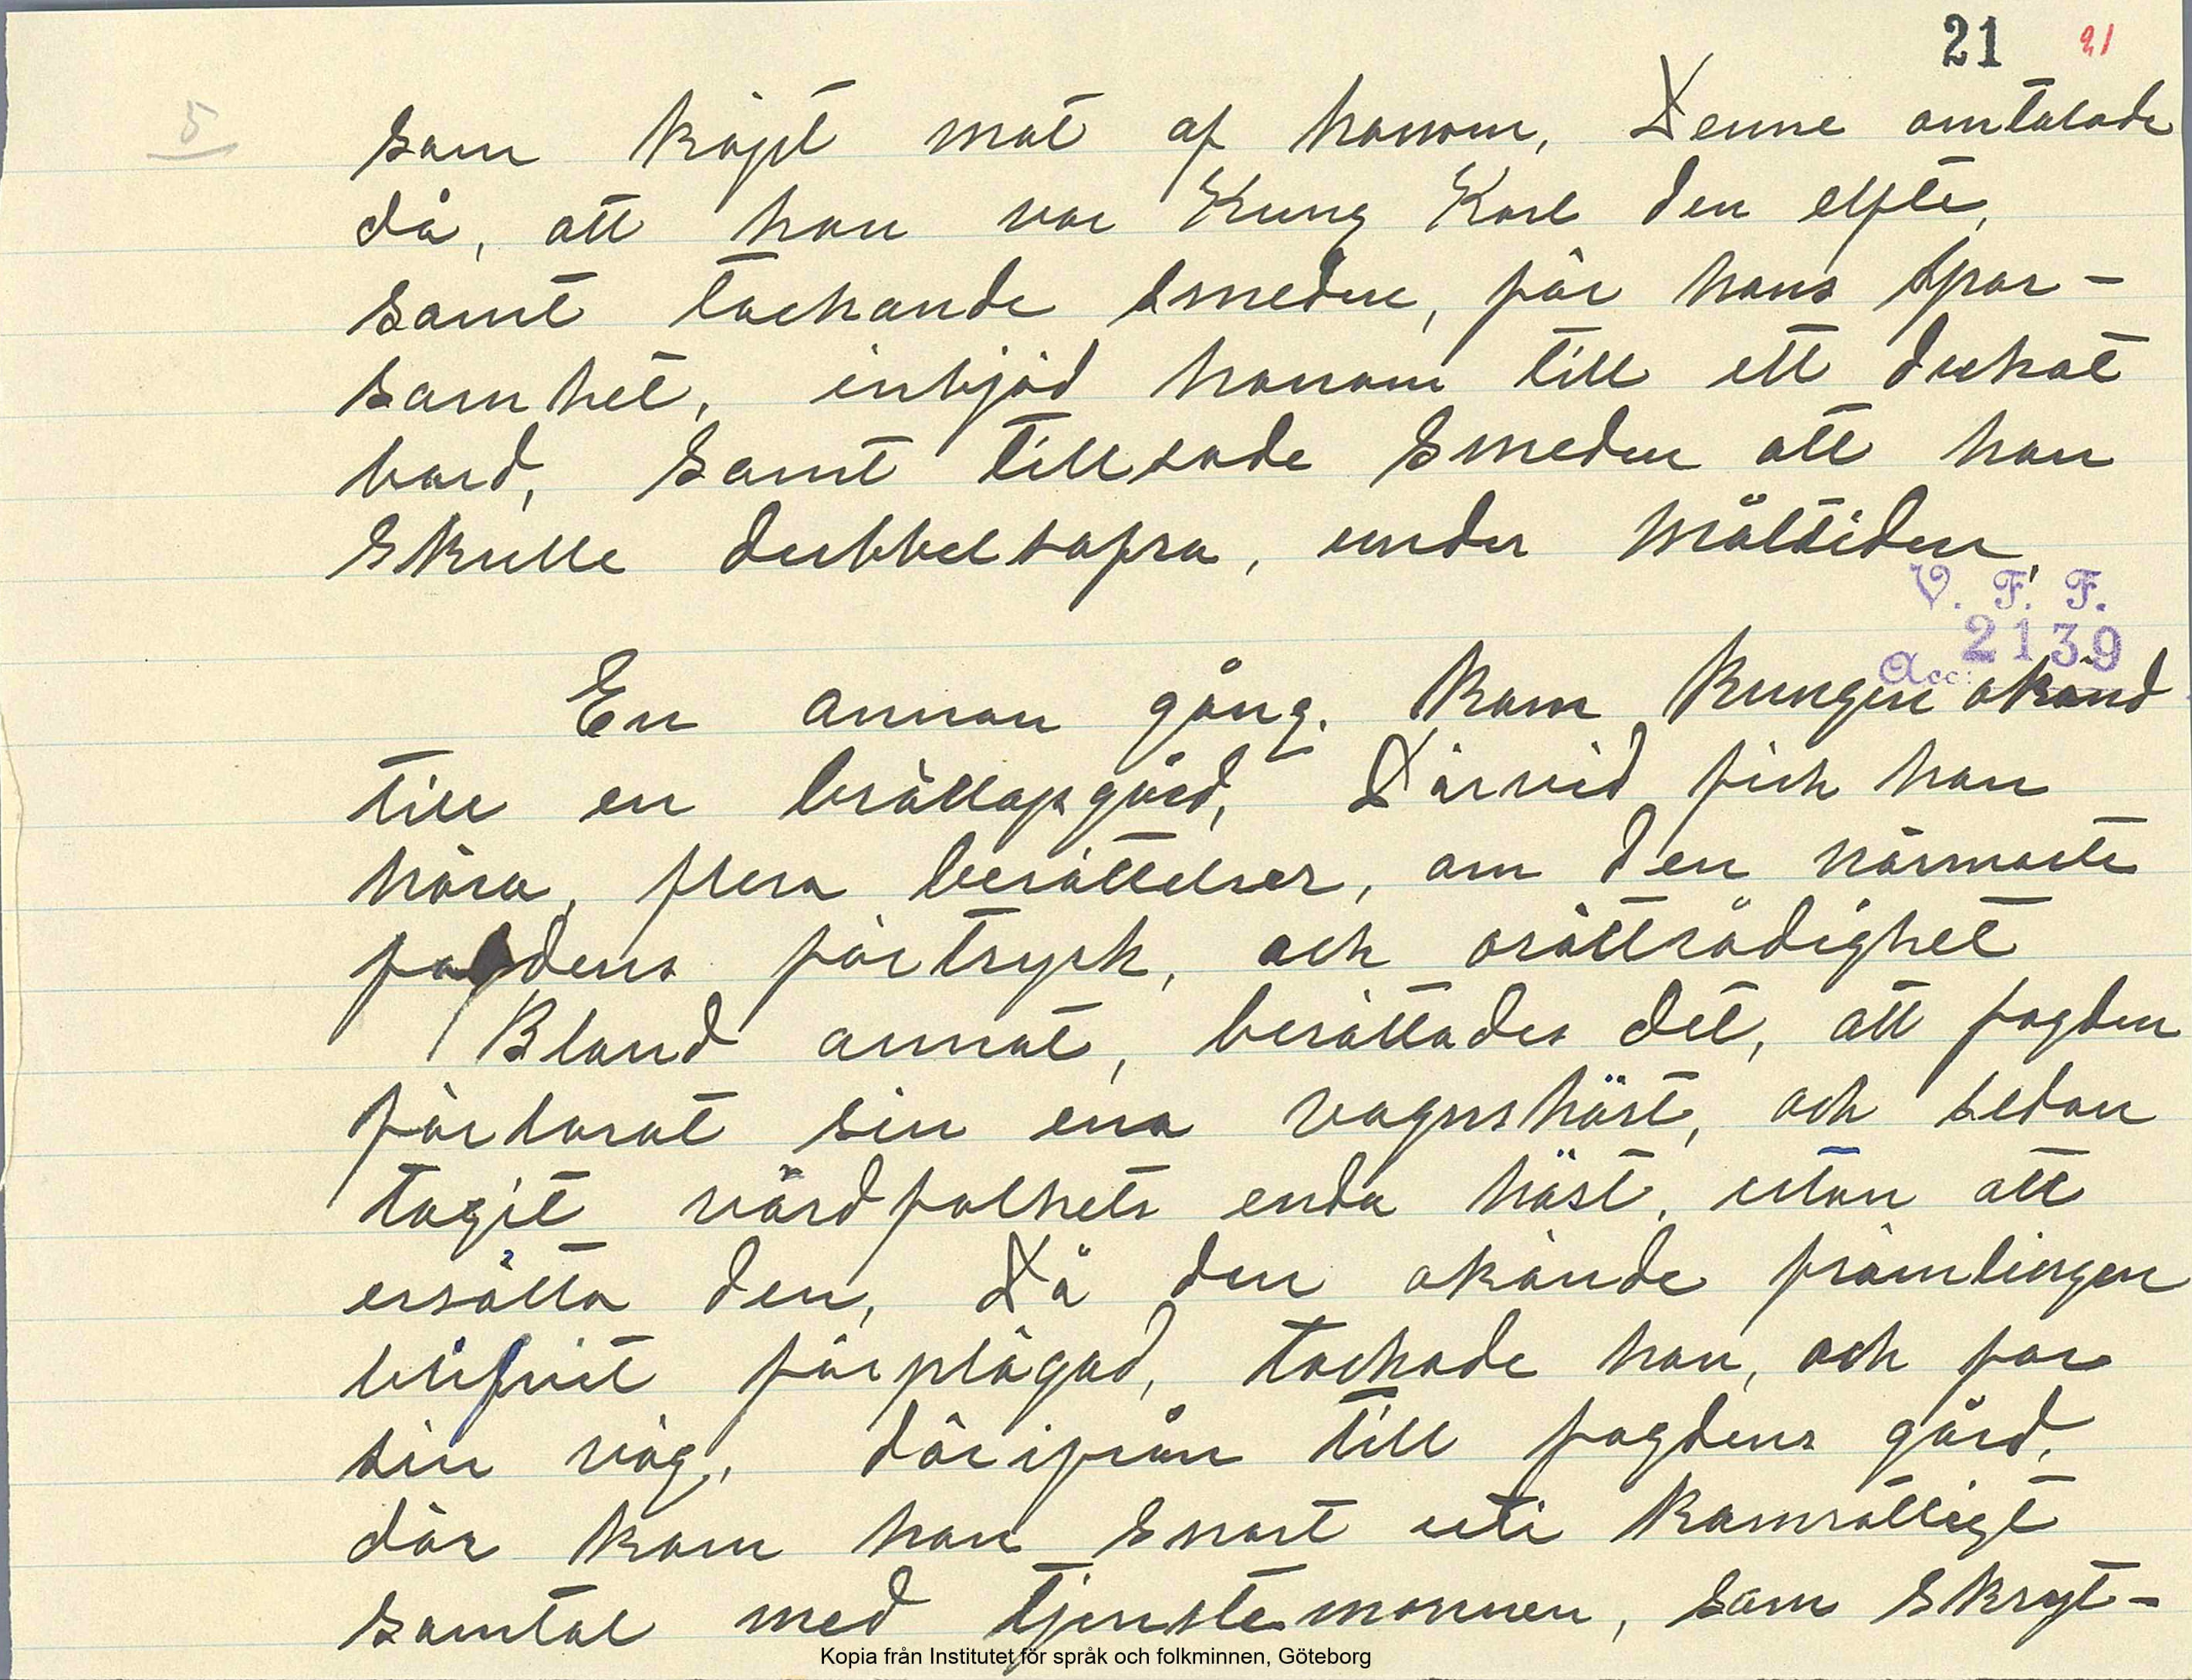 21 21
5
som köpt mat af honom, Denne omtalade
då, att han var Kung Karl den elfte,
samt tackande smeden, för hans spar-
samhet, inbjöd honom till ett dukat
bord, samt tillsade smeden att han
skulle dubbelsafra, under måltiden,
V. F. F.
Acc: 2139
En annan gång. kom kungen okänd
till en bröllopsgård, Därvid fick han
höra, flera berättelser, om den närmaste
fogdens förtryck, och orättrådighet
Bland annat, berättades det, att fogden
förlorat sin ena vagnshäst, och sedan
tagit värdfolkets enda häst, utan att
ersätta den, Då den okände främlingen
blifvit förplägad, tackade han, och for
sin väg, därifrån till fogdens gård,
där kom han snart uti kamratligt
samtal med tjenstemannen, som skryt-
Kopia från Institutet för språk och folkminnen, Göteborg